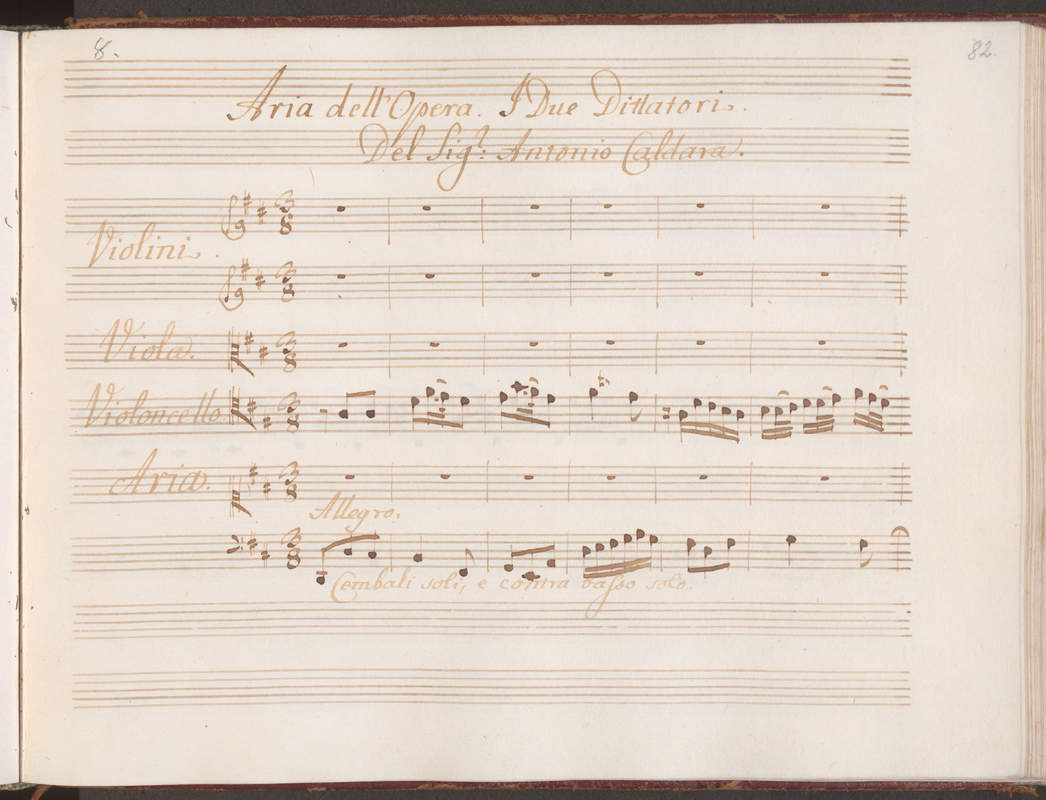 8.
82.
Aria dell'Opera. I Due Dittatori.
Del Sigr: Antonio Caldara.
Violini.
Viola.
Violoncello.
Aria.
Allegro.
Cembali soli, e contra basso solo.